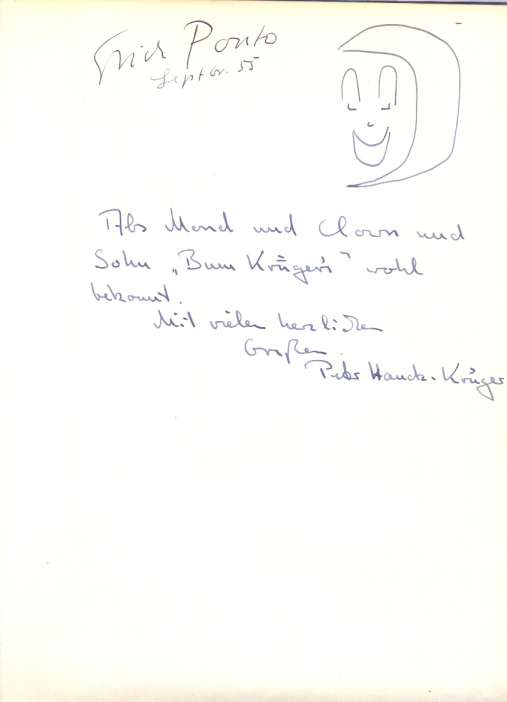 Erich Ponto
Septbr. 55
Als Mond und Clown und
Sohn „Bum Krüger's“ wohl
bekannt.
Mit vielen herzlichen
Grüßen.
Peter Hauck-Krüger